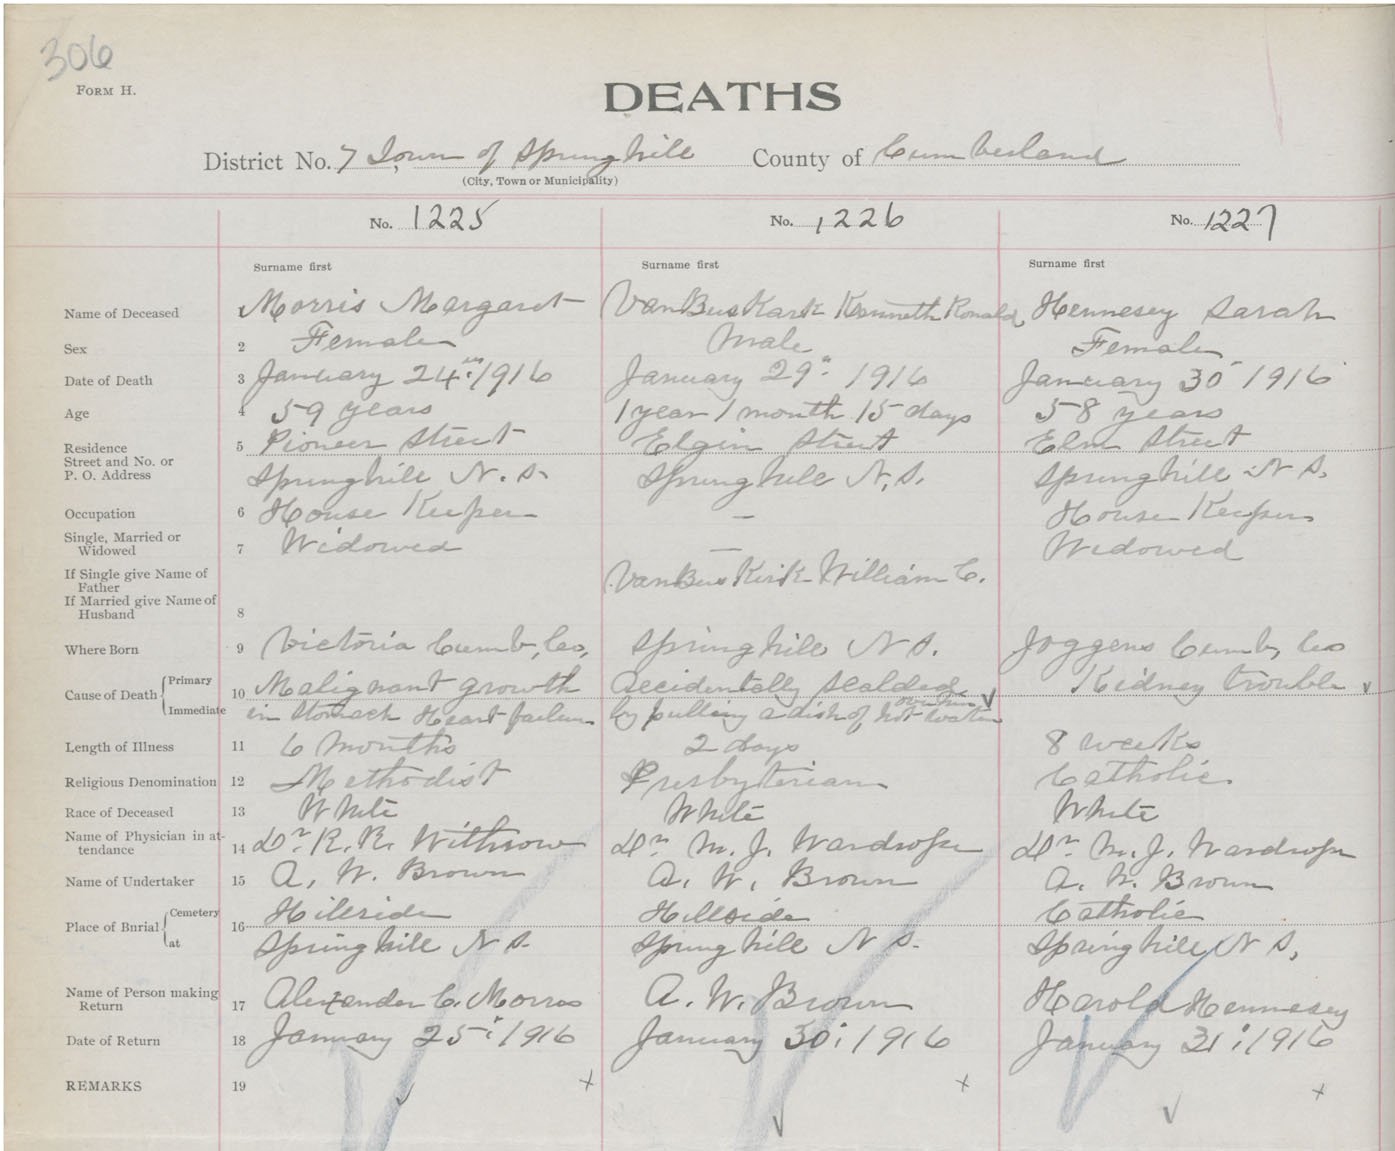 306
FORM H.
DEATHS
District No. 7 Town of Springhill County of Cumberland
(City, Town or Municipality)
No. 1225 No. 1226 No. 1227
Surname first Surname first Surname first
Name of Deceased 1 Morris Margaret VanBusKark Kenneth Ronald Hennesey Sarah
Sex 2 Female Male Female
Date of Death 3 January 24th 1916 January 29" 1916 January 30 1916
Age 4 59 years 1 year 1 month 15 days 58 years
Residence 5 Pioneer Street Elgin Street Elm Street
Street and No. or
P. O. Address Springhill N. S. Springhill N. S. Springhill N S.
Occupation 6 House Keeper — House Keeper
Single, Married or
Widowed 7 Widowed — Widowed
If Single give Name of
Father VanBusKirk William C.
If Married give Name of
Husband 8
Where Born 9 Victoria Cumb, Co, Springhill N S. Joggens Cumb, Co
Cause of Death Primary 10 Malignant growth Accidentally scalded Kidney trouble
Immediate in Stomach Heart failure by pulling a dish of hot water over him
Length of Illness 11 6 Months 2 days 8 weeks
Religious Denomination 12 Methodist Presbyterian Catholic
Race of Deceased 13 White White White
Name of Physician in at-
tendance 14 Dr R. R. Withrow Dr M. J. Wardrope Dr M. J. Wardrope
Name of Undertaker 15 A. W. Brown A. W. Brown A. W. Brown
Place of Burial Cemetery 16 Hillside Hillside Catholic
at Springhill N S. Springhill N S. Springhill N S,
Name of Person making
Return 17 Alexander C. Morris A. W. Brown Harold Hennesey
Date of Return 18 January 25 1916 January 30 1916 January 31 1916
REMARKS 19 x x x